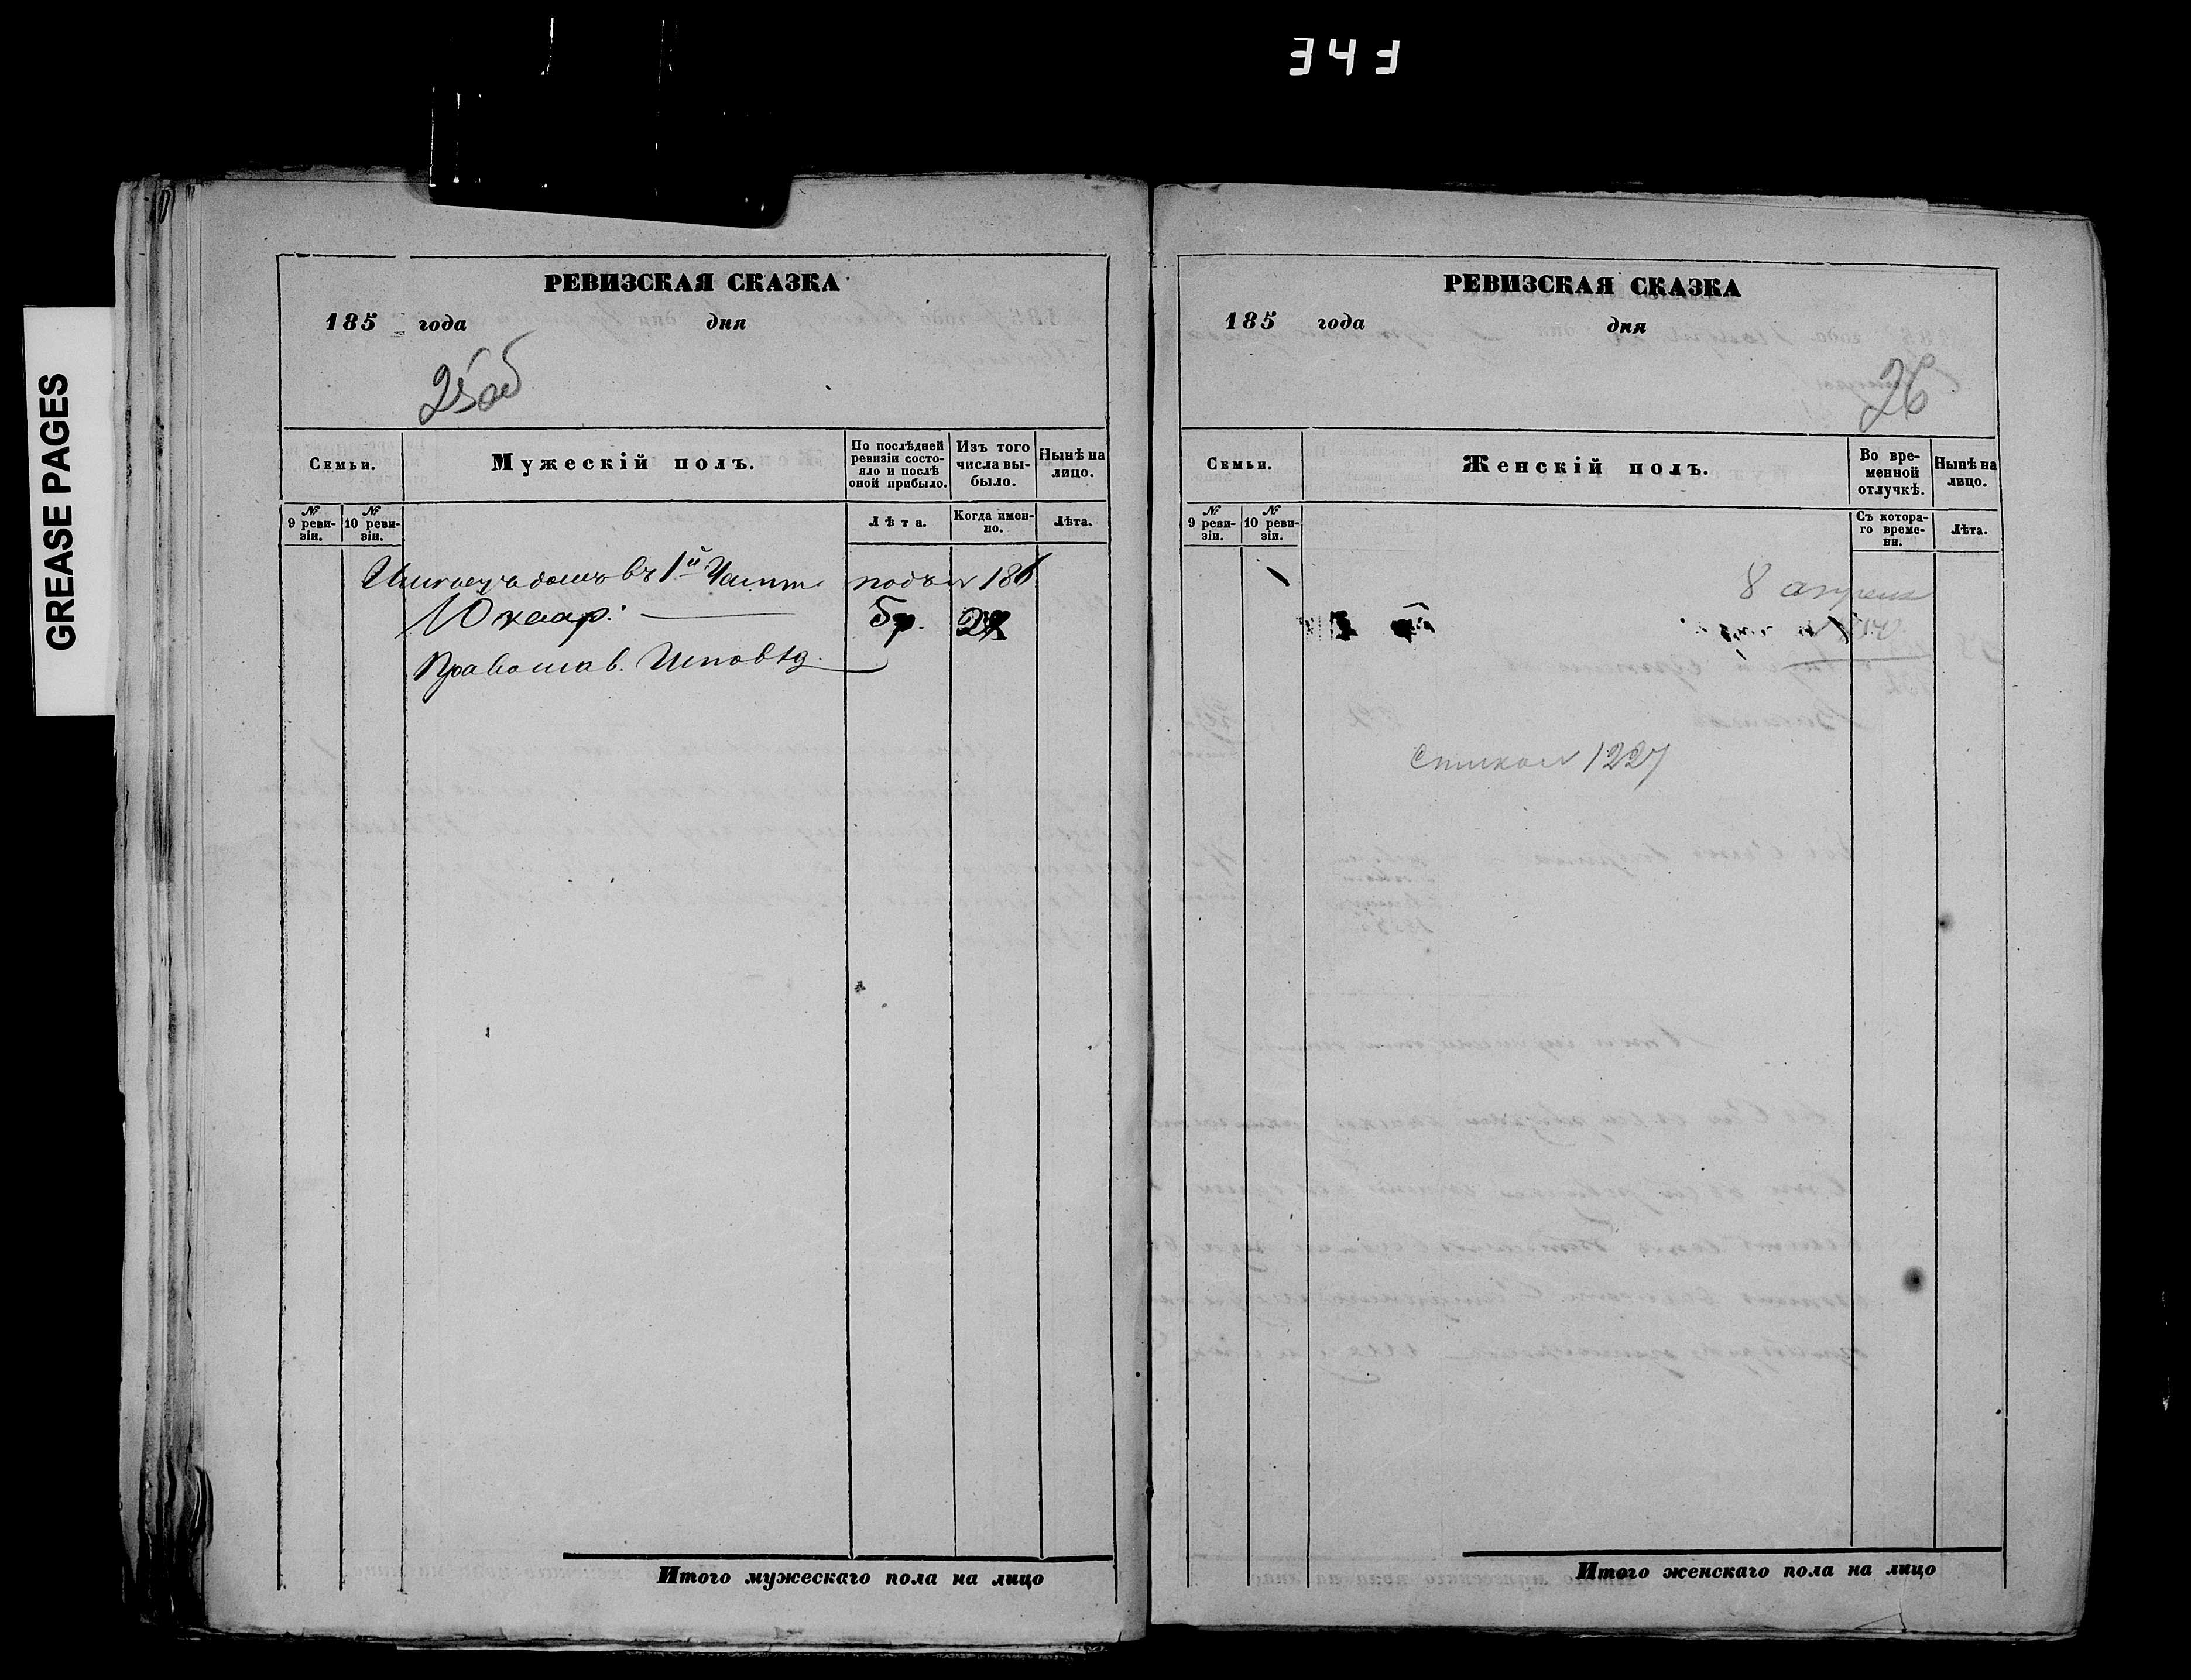 343
GREASE PAGES
РЕВИЗСКАЯ СКАЗКА
185 года дня
25об
Семьи.
Мужескій полъ.
По послѣдней ревизіи состояло и послѣ оной прибыло.
Изъ того числа выбыло.
Нынѣ на лицо.
№ 9 ревизіи.
№ 10 ревизіи.
Лѣта.
Когда именно.
Лѣта.
домъ въ 1й Части подъ № 186
5р.
Православ. Исповѣд.
Итого мужескаго пола на лицо
РЕВИЗСКАЯ СКАЗКА
185 года дня
26
Семьи.
Женскій полъ.
Во временной отлучкѣ.
Нынѣ на лицо.
№ 9 ревизіи.
№ 10 ревизіи.
Съ котораго времени.
Лѣта.
8 апреля
1227
Итого женскаго пола на лицо